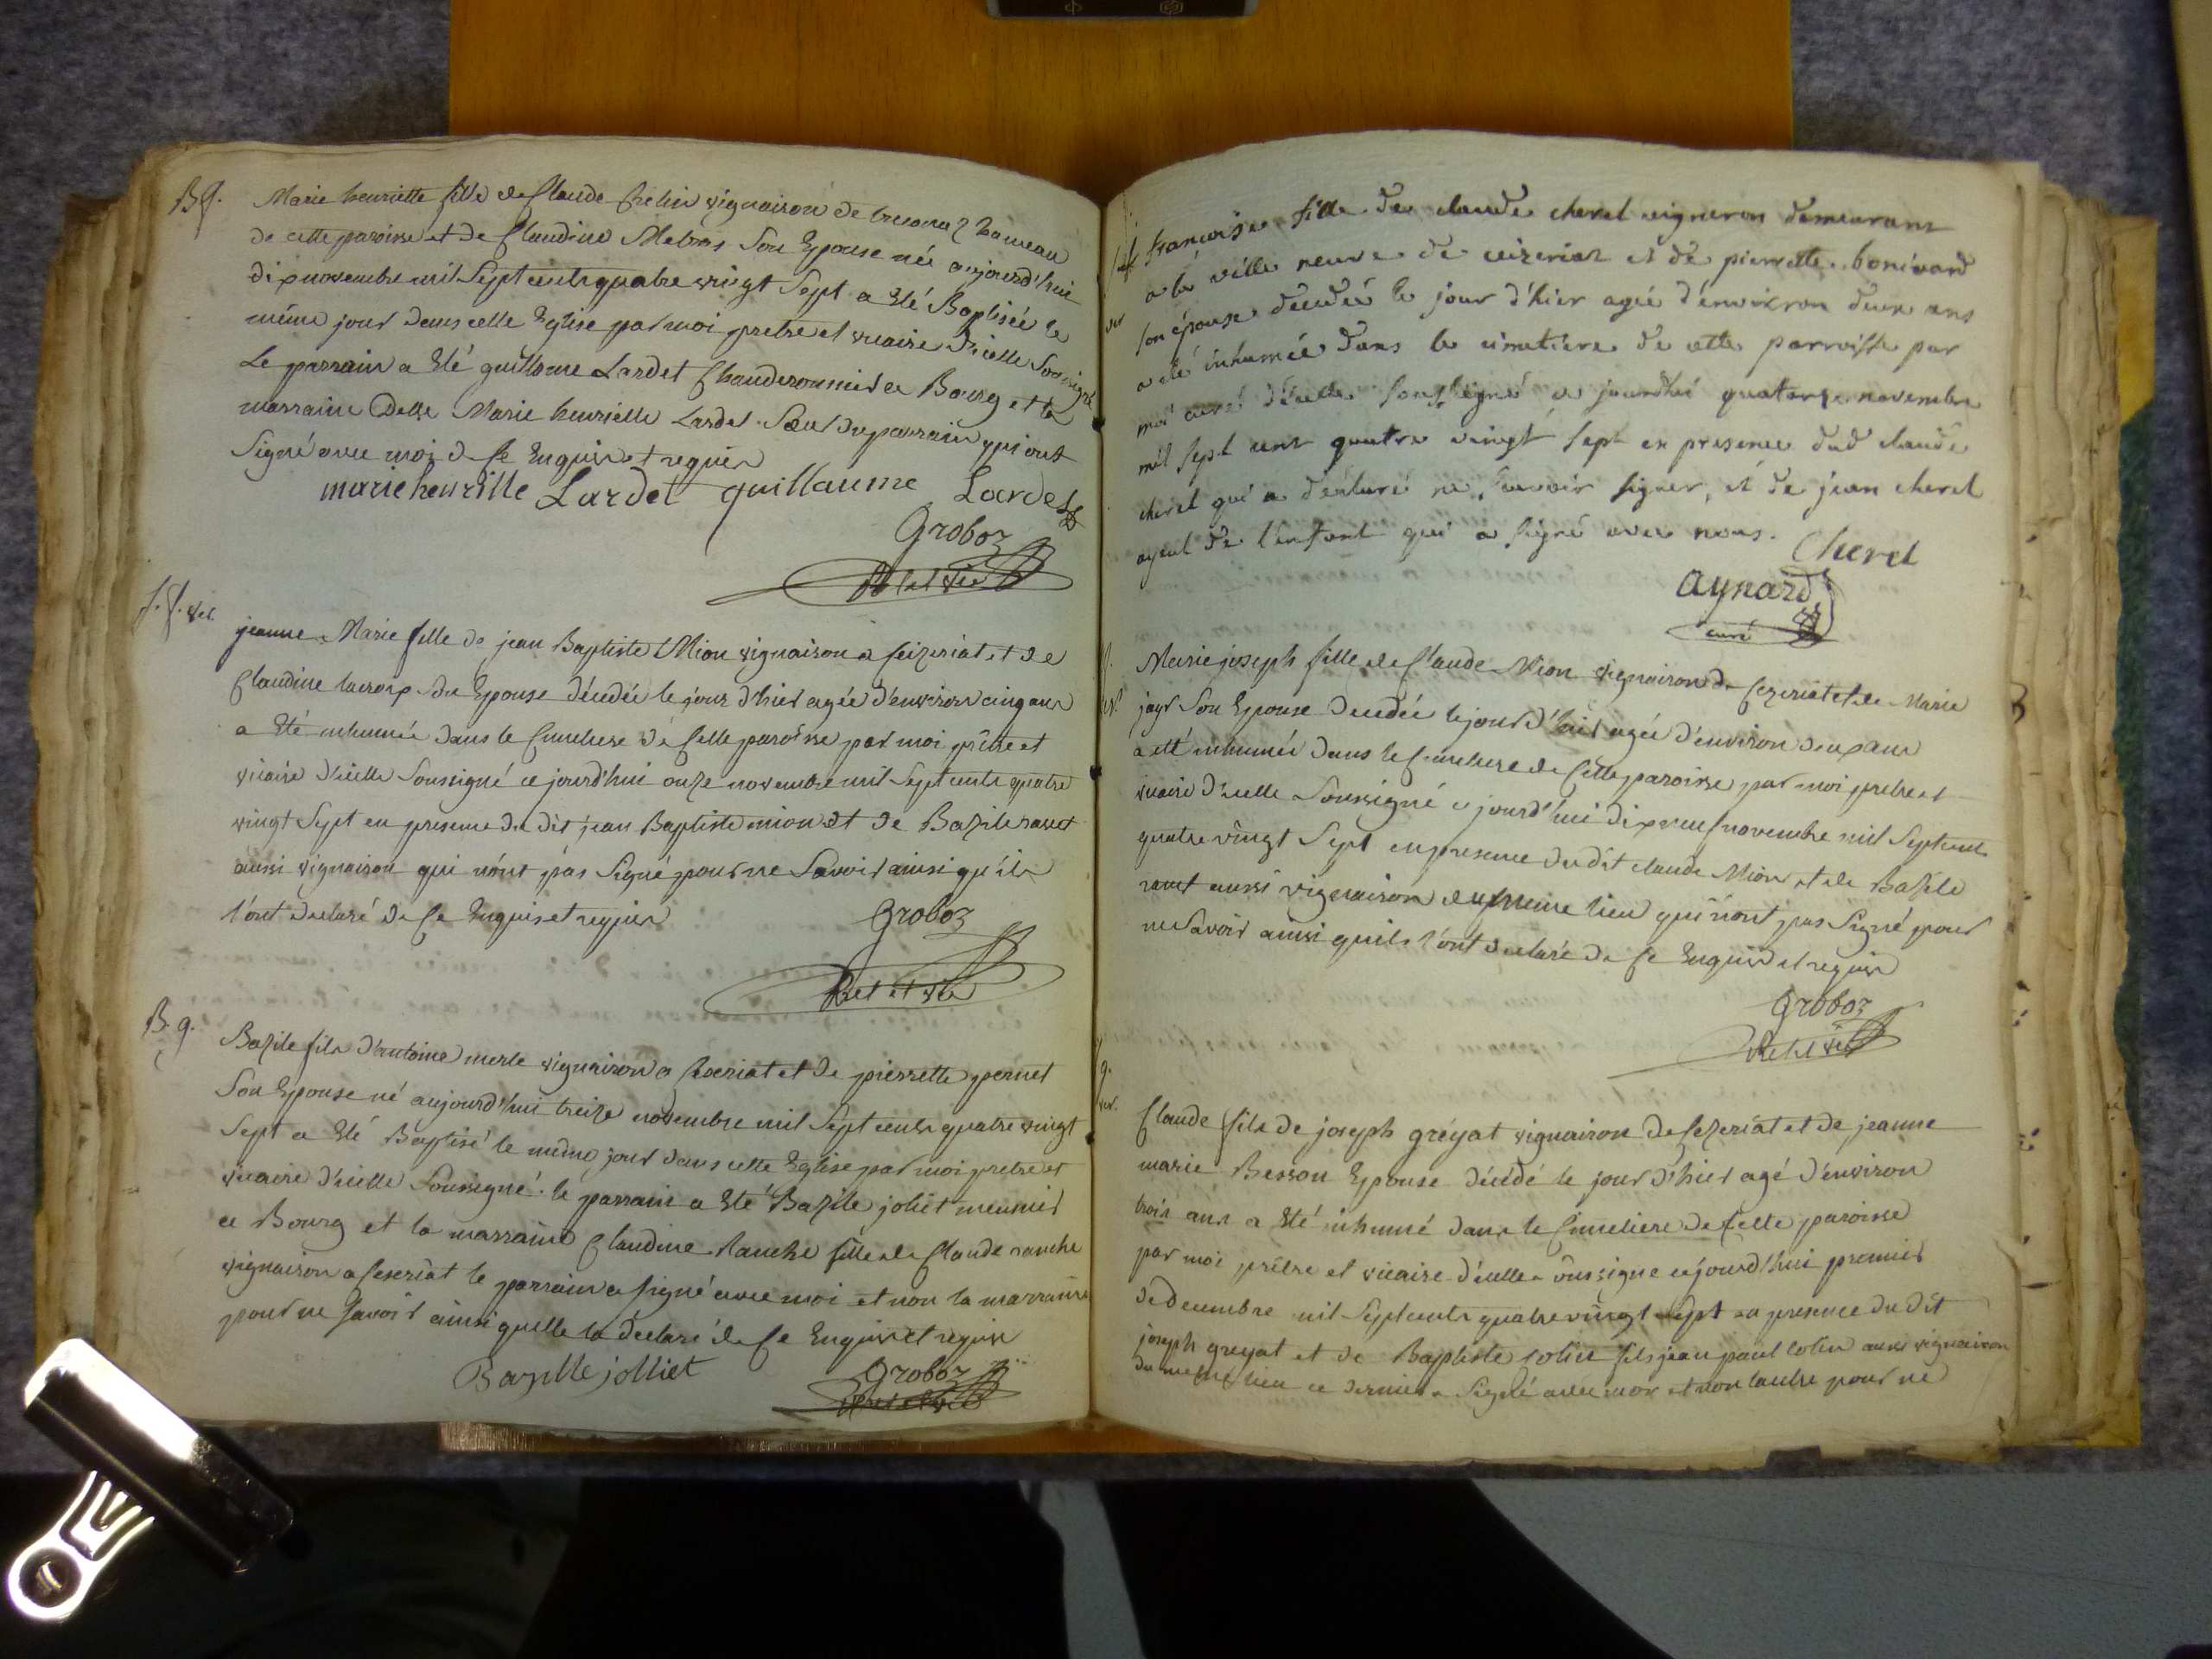 B f.
Marie henriette fille de Claude Chelin vignairon de hameau
de cette paroisse et de Claudine Son Epouse née aujourd'hui
dix novembre mil Sept cents quatre vingt Sept a Eté Baptisée le
même jour dans cette Eglise par moi pretre et vicaire d'icelle Soussigné
Le parrain a Eté guillaume Lardet Chauderonnier a Bourg et la
marraine Delle Marie henriette Lardet Sœur du parrain qui ont
Signé avec moi de Ce Enquis et requis
marie henriette Lardet guillaume Lardet
Groboz
Pret et vic
f. f. vel.
jeanne Marie fille de jean Baptiste Mion vignairon a Ceizeriat et de
Claudine lacroix du Epouse décédée le jour d'hier agée d'environ cinq ans
a Eté inhumée dans le Cimetiere de Cette paroisse par moi prêtre et
vicaire d'icelle Soussigné ce jourd'hui onze novembre mil Sept cents quatre
vingt Sept en presence du dit jean Baptiste mion et de Bazile ravet
aussi vignairon qui n'ont pas Signé pour ne Savoir ainsi qu'ils
l'ont declaré de Ce Enquis et requis
Groboz
Pret et vic
B. g.
Bazile fils d'antoine merle vignairon a Ceseriat et de pierrette pernet
Son Epouse né aujourd'hui treize novembre mil Sept cents quatre vingt
Sept a Eté Baptisé le même jour dans cette Eglise par moi pretre et
vicaire d'icelle Soussigné. le parrain a Eté Bazile joliet meunier
a Bourg et la marraine Claudine ranche fille de Claude ranche
vignairon a Ceseriat le parrain a signé avec moi et non la marraine
pour ne Savoir ainsi quelle la déclaré de Ce Enquis et requise
Bazille jolliet Groboz
Pret et vic
françoise fille de claude cheret vigneron demeurant
a la ville neuve de ceizeriat et de pierrette bonivard
son épouse décédée le jour d'hier agée d'environ deux ans
a été inhumée dans le cimetière de cette parroisse par
moi curé d'icelle soussigné ce jourd'hui quatorze novembre
mil sept cent quatre vingt sept en presence dud claude
cheret qui a declaré ne sçavoir signer, et de jean cheret
ayeul de l'enfant qui a signé avec nous.
Cheret
Aynard
curé
Marie joseph fille de Claude Mion vignairon de Cezeriat et de Marie
jayr Son Epouse decedée le jour d'hier agée d'environ deux ans
a été inhumée dans le Cimetiere de Cette paroisse par moi pretre et
vicaire d'icelle Soussigné ce jourd'hui dix neuf novembre mil Sept cent
quatre vingt Sept en presence du dit claude Mion et de Bazile
ravet aussi vignairon du même lieu qui n'ont pas Signé pour
ne Savoir ainsi quils l'ont declaré de Ce Enquis et requis
Groboz
Pret et vic
g.
vel.
Claude fils de joseph gréyat vignairon de Cezeriat et de jeanne
marie Besson Epouse décédé le jour d'hier agé d'environ
trois ans a Eté inhumé dans le Cimetiere de Cette paroisse
par moi prêtre et vicaire d'icelle soussigne ce jourd'hui premier
de decembre mil Sept cents quatre vingt Sept en presence du dit
joseph greyat et de Baptiste cotin fils jean paul cotin aussi vignairon
du meme lieu ce dernier a Signé avec moi et non l'autre pour ne